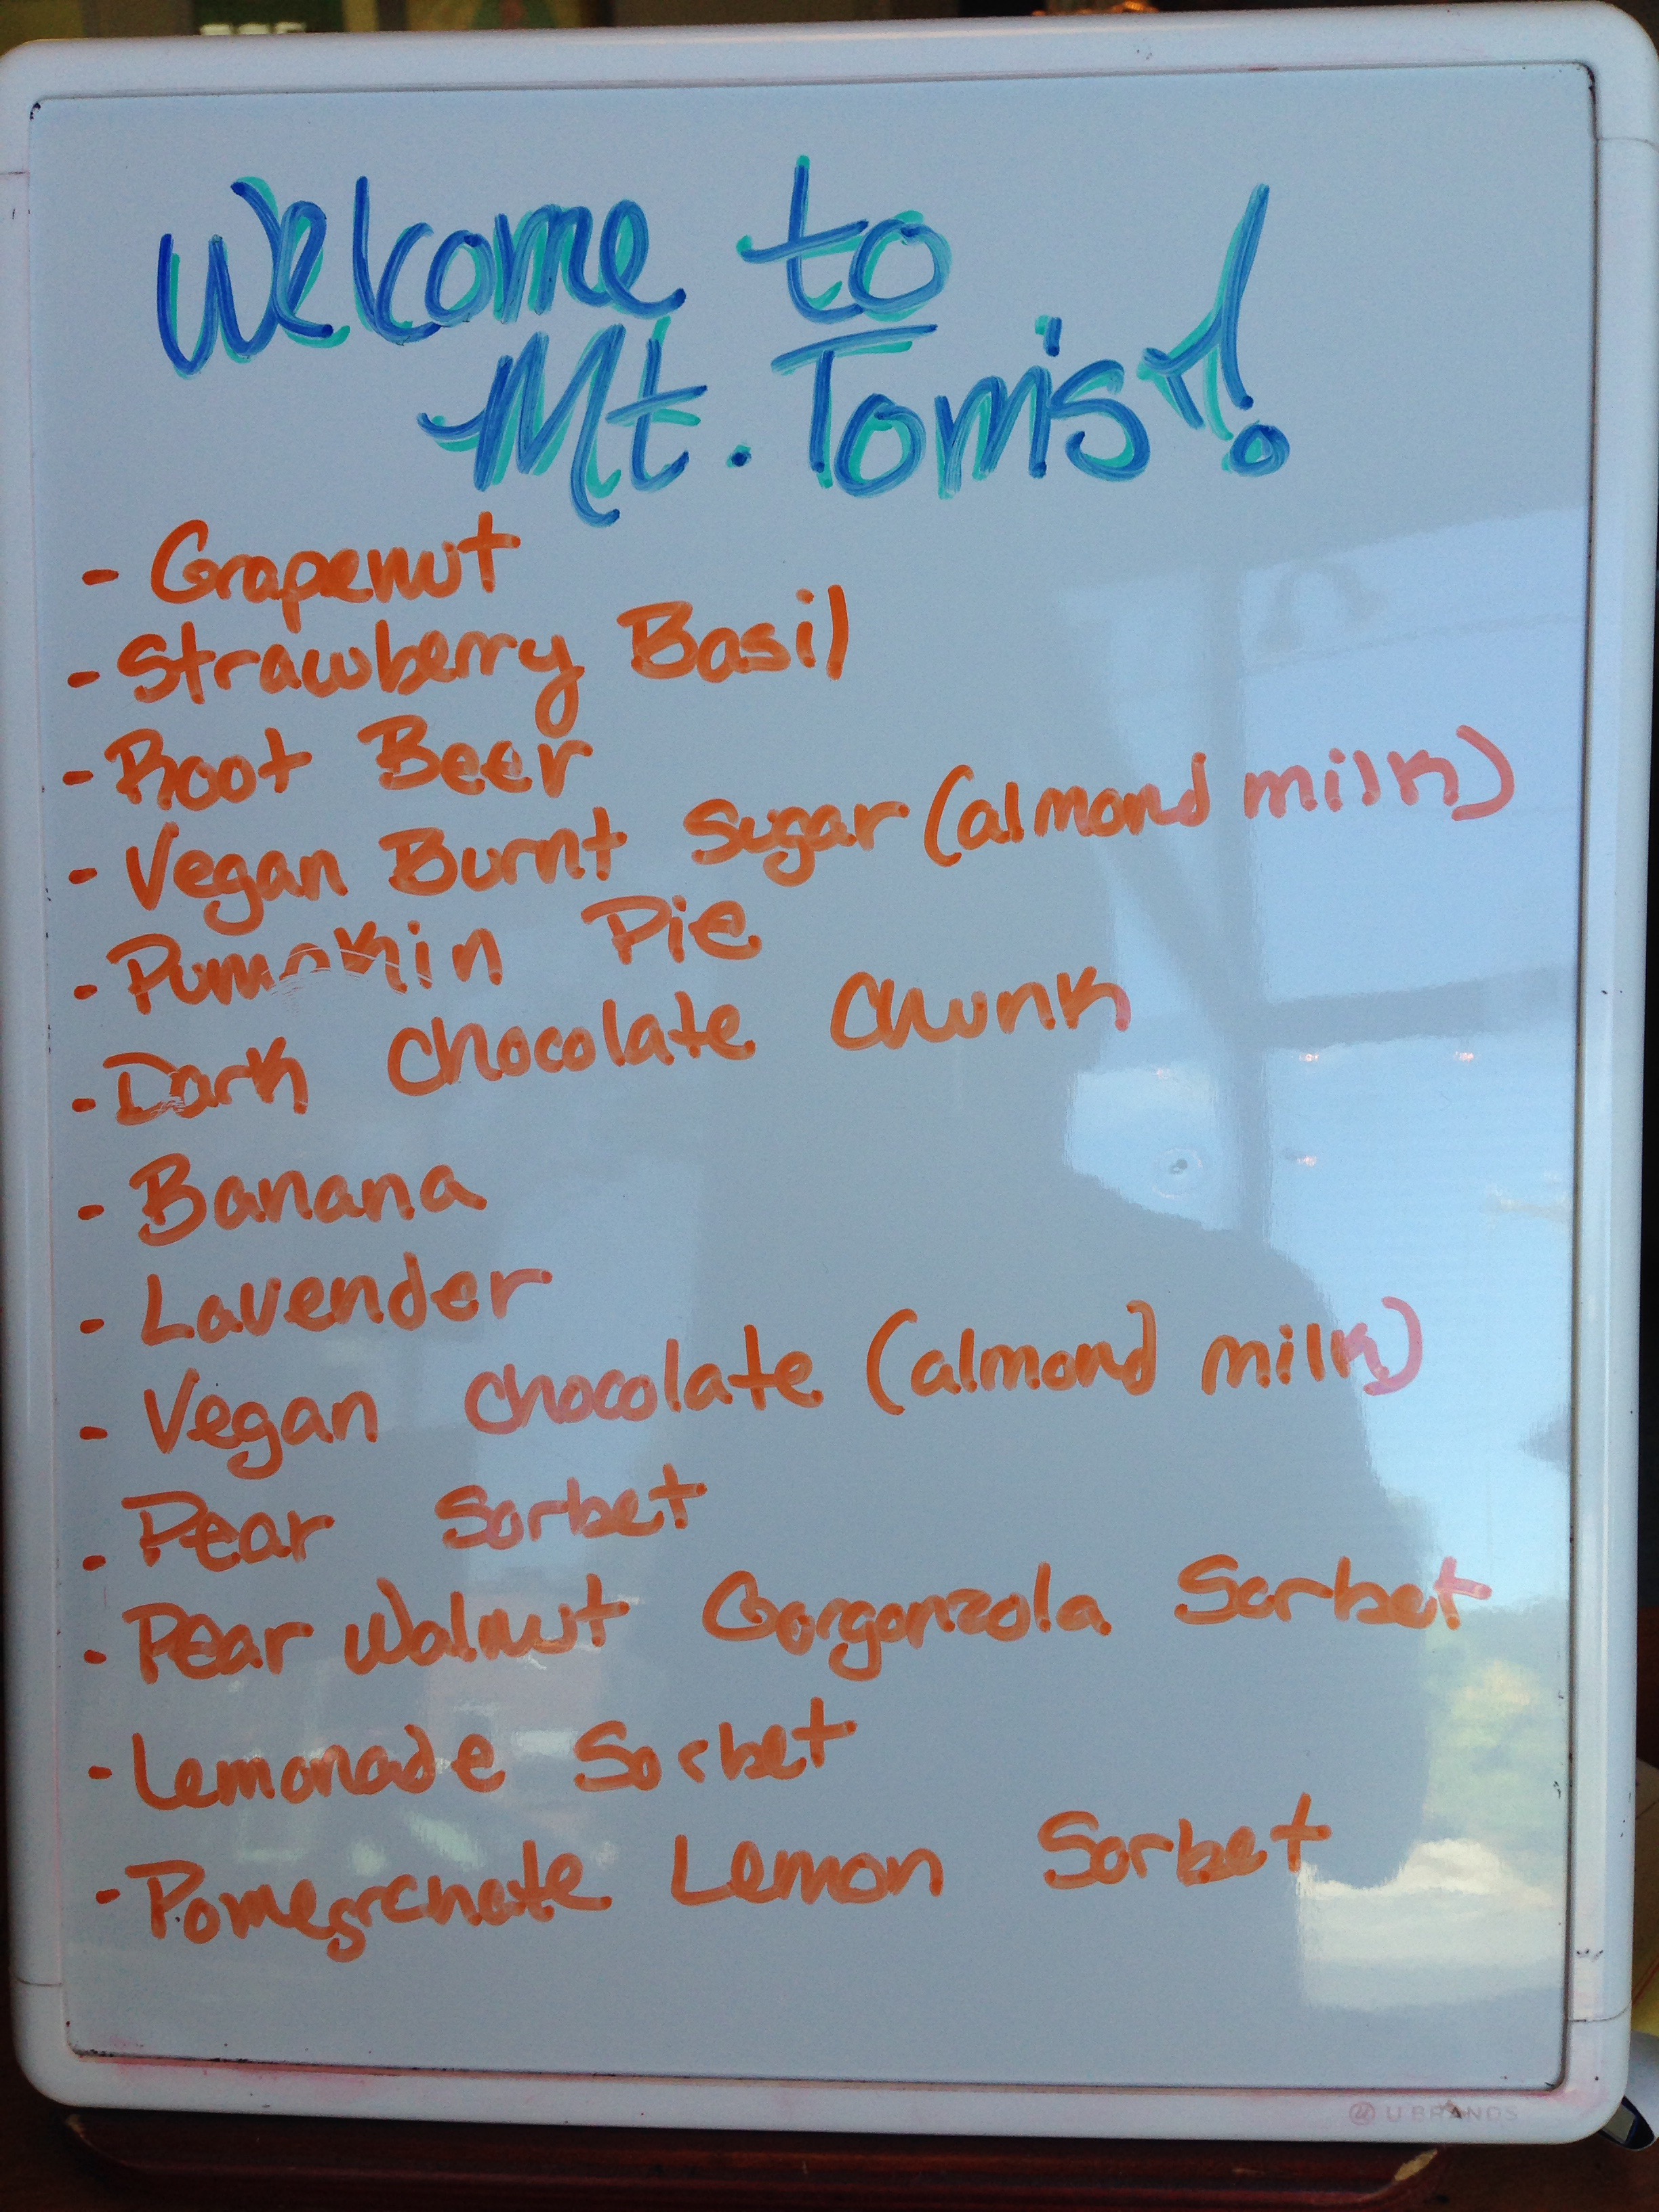 Welcome to
Mt. Tom's!
- Grapenut
- Strawberry Basil
- Root Beer
- Vegan Burnt Sugar (almond milk)
- Pumpkin Pie
- Dark Chocolate Chunk
- Banana
- Lavender
- Vegan Chocolate (almond milk)
- Pear Sorbet
- Pear Walnut Gorgonzola Sorbet
- Lemonade Sorbet
- Pomegranate Lemon Sorbet
U BRANDS